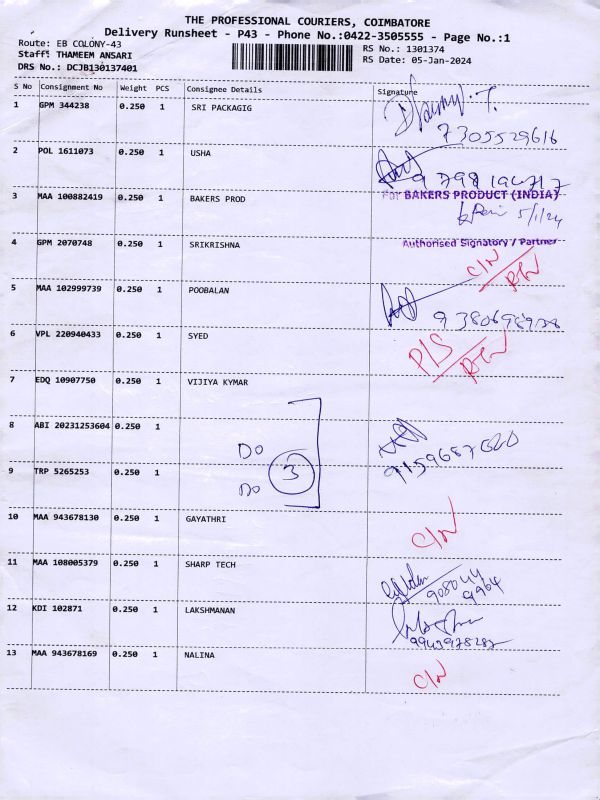 THE PROFESSIONAL COURIERS, COIMBATORE
Delivery Runsheet - P43 - Phone No.:0422-3505555 - Page No.:1
Route: EB COLONY-43
RS No.: 1301374
Staff: THAMEEM ANSARI
RS Date: 05-Jan-2024
DRS No.: DCJB130137401
S No Consignment No Weight PCS Consignee Details Signature
1 GPM 344238 0.250 1 SRI PACKAGIG
7305529616
2 POL 1611073 0.250 1 USHA
3 MAA 100882419 0.250 1 BAKERS PROD
For BAKERS PRODUCT (INDIA)
5/1/24
4 GPM 2070748 0.250 1 SRIKRISHNA
Authorised Signatory / Partner
C/N
5 MAA 102999739 0.250 1 POOBALAN
6 VPL 220940433 0.250 1 SYED
P/S
7 EDQ 10907750 0.250 1 VIJIYA KYMAR
8 ABI 20231253604 0.250 1
DO
9 TRP 5265253 0.250 1
DO 3
10 MAA 943678130 0.250 1 GAYATHRI
C/N
11 MAA 108005379 0.250 1 SHARP TECH
908044
9964
12 KDI 102871 0.250 1 LAKSHMANAN
9943978287
13 MAA 943678169 0.250 1 NALINA
C/N